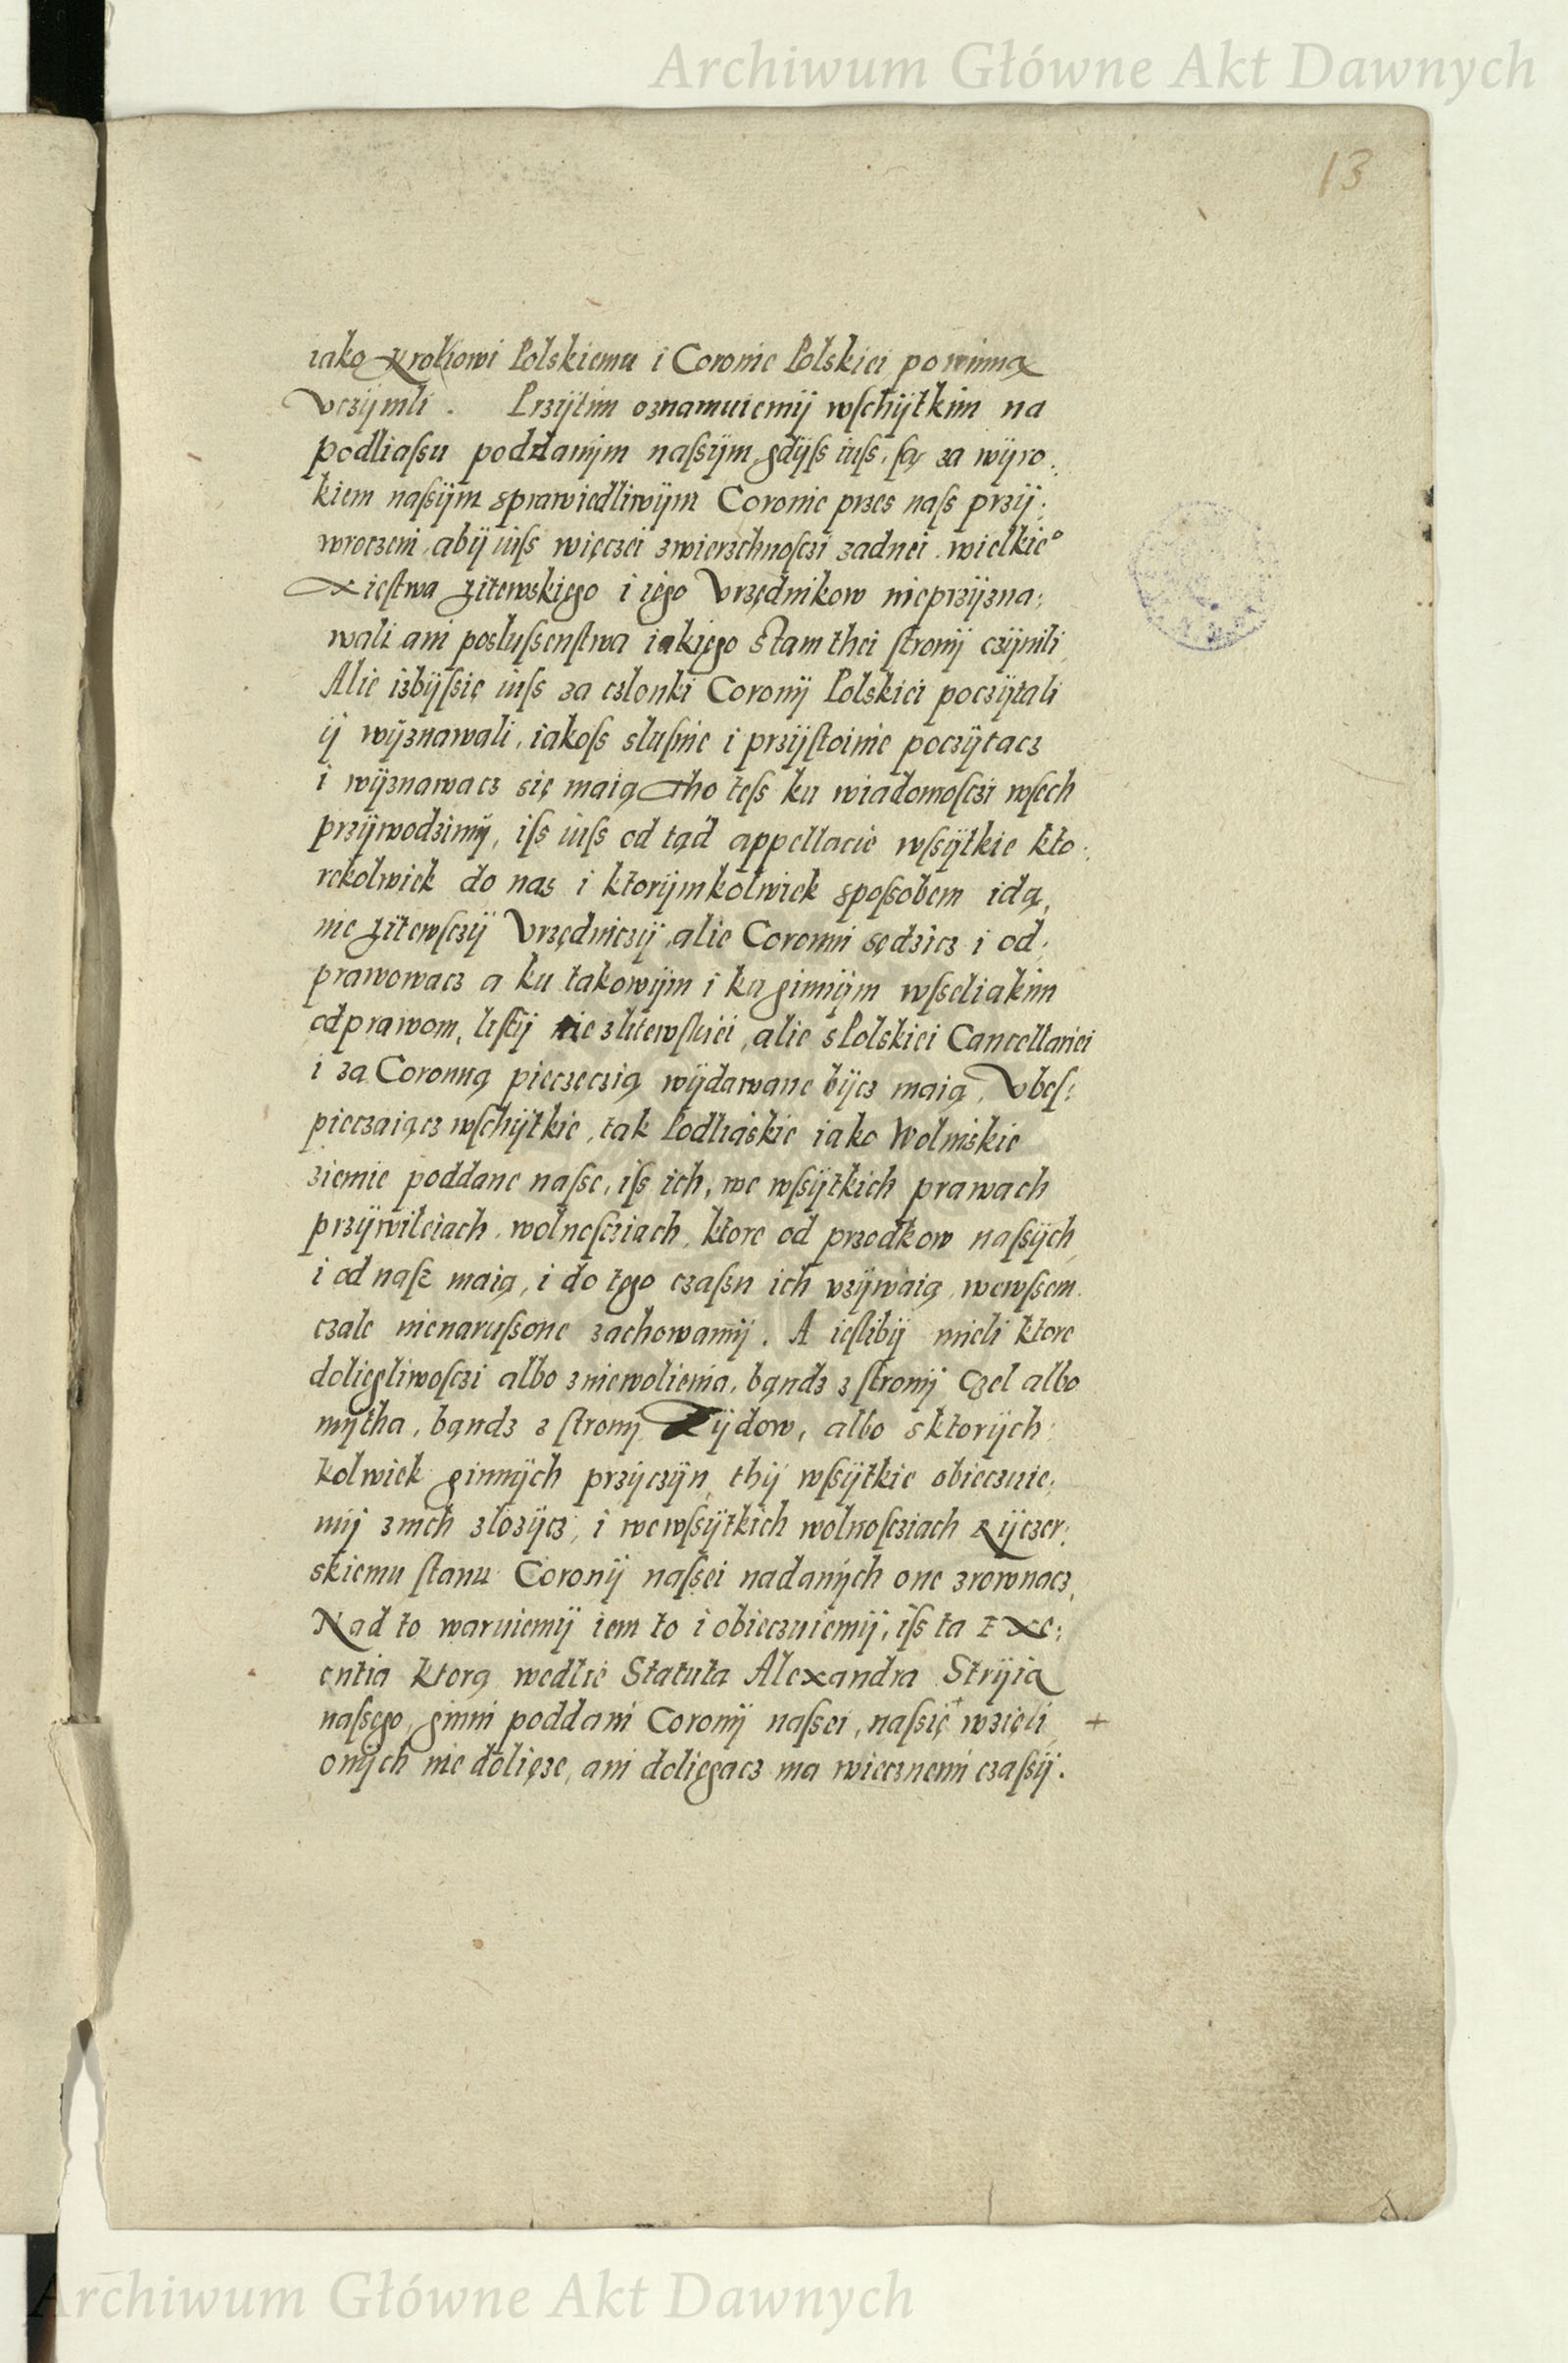 Archiwum Główne Akt Dawnych
13
iako Kroliowi Polskiemu i Coronie Polskiei powinną
Vczÿnili . Przÿtim oznamuiemÿ wſchÿtkim na
podliaſsu poddanÿm naſsÿm, gdÿſs iuſs, ſą za wÿro:
kiem naſsÿm sprawiedliwÿm Coronie przes naſs przÿ:
wroczeni, abÿ iuſs więczei zwierzchnoſczi zadnei wielkie°
Xięſtwa Litewskiego i iego Vrzędnikow nieprzÿzna:
wali ani posluſsenſtwa iakiego stamthei ſtronÿ czÿnili
Alie izbÿſsię iuſs za czlonki Coronÿ Polskiei poczÿtali
ÿ wÿznawali, iakoſs sluſnie i przÿſtoinie poczÿtacz
i wÿznawacz się maią Tho teſs ku wiadomoſczi wſech
przÿwodzimÿ, iſs iuſs od tąd appellacie wſsÿtkie kto:
rekolwiek do nas i ktorÿmkolwiek spoſsobem idą,
nie Litewſczÿ Vrzędniczÿ, alie Coronni sędzicz i od:
prawowacz a ku takowÿm i ku ginnÿm wſseliakim
odprawom, liſtÿ nie zlitewſkiei, alie s Polskiei Cancellariei
i za Coronną pieczęczią wÿdawane bÿcz maią, Vbeſ:
pieczaiącz wſchÿtkie, tak Podliaskie iako Wolinskie
ziemie poddane naſse, iſs ich, we wſsÿtkich prawach
przÿwileiach, wolnoſcziach, ktore od przodkow naſsÿch
i od naſz maią, i do tego czaſzu ich vzÿwaią, wewſsem
czale nienaruſsone zachowamÿ. A ieſlibÿ mieli ktore
doliegliwoſczi albo zniewolienia, bąndz z ſtronÿ Czel albo
mÿtha, bąndz z ſtronÿ Zÿdow, albo sktorÿch:
kolwiek ginnÿch przÿczÿn, thÿ wſsÿtkie obieczuie:
mÿ znich zlozÿcz, i wewſsÿtkich wolnoſcziach Rÿczer:
skiemu ſtanu Coronÿ naſsei nadanÿch one zrownacz,
Nad to waruiemÿ iem to i obieczuiemÿ, iſs ta Exe:
entia ktorą wedlie Statuta Alexandra Strÿia
naſsego, ginni poddani Coronÿ naſsei, naſsię + wzięli +
onÿch nie dolięze, ani doliegacz ma wiecznemi czaſsÿ.
Archiwum Główne Akt Dawnych